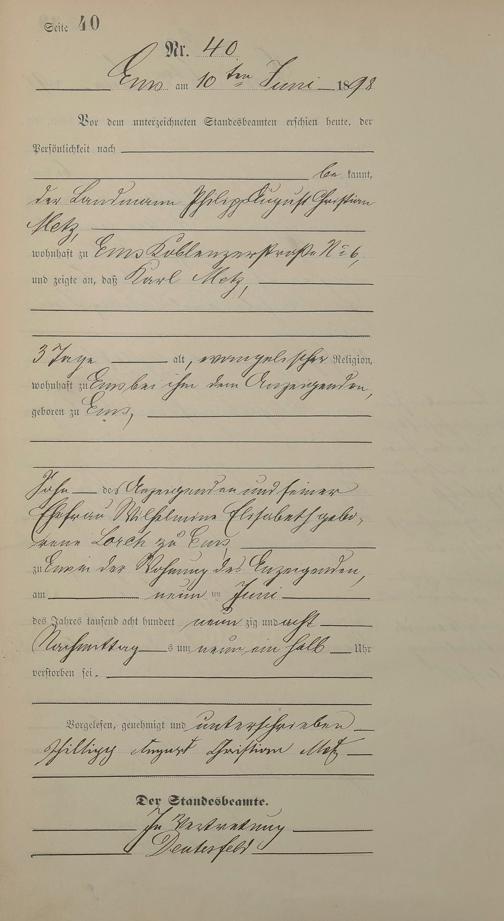 Seite 40
Nr. 40
Ems am 10ten Juni 1898
Vor dem unterzeichneten Standesbeamten erschien heute, der
Persönlichkeit nach
be kannt,
der Landmann Philipp August Christian
Metz,
wohnhaft zu Ems Koblenzerstraße No 6,
und zeigte an, daß Karl Metz,
3 Tage alt, evangelischer Religion,
wohnhaft zu Ems bei ihm dem Anzeigenden,
geboren zu Ems,
Sohn des Anzeigenden und seiner
Ehefrau Wilhelmine Elisabeth gebo-
rene Lorch zu Ems
zu Ems in der Wohnung des Anzeigenden,
am neun ten Juni
des Jahres tausend acht hundert neun zig und acht
Nachmittags um neun ein halb Uhr
verstorben sei.
Vorgelesen, genehmigt und unterschrieben
Philipp August Christian Metz
Der Standesbeamte.
In Vertretung